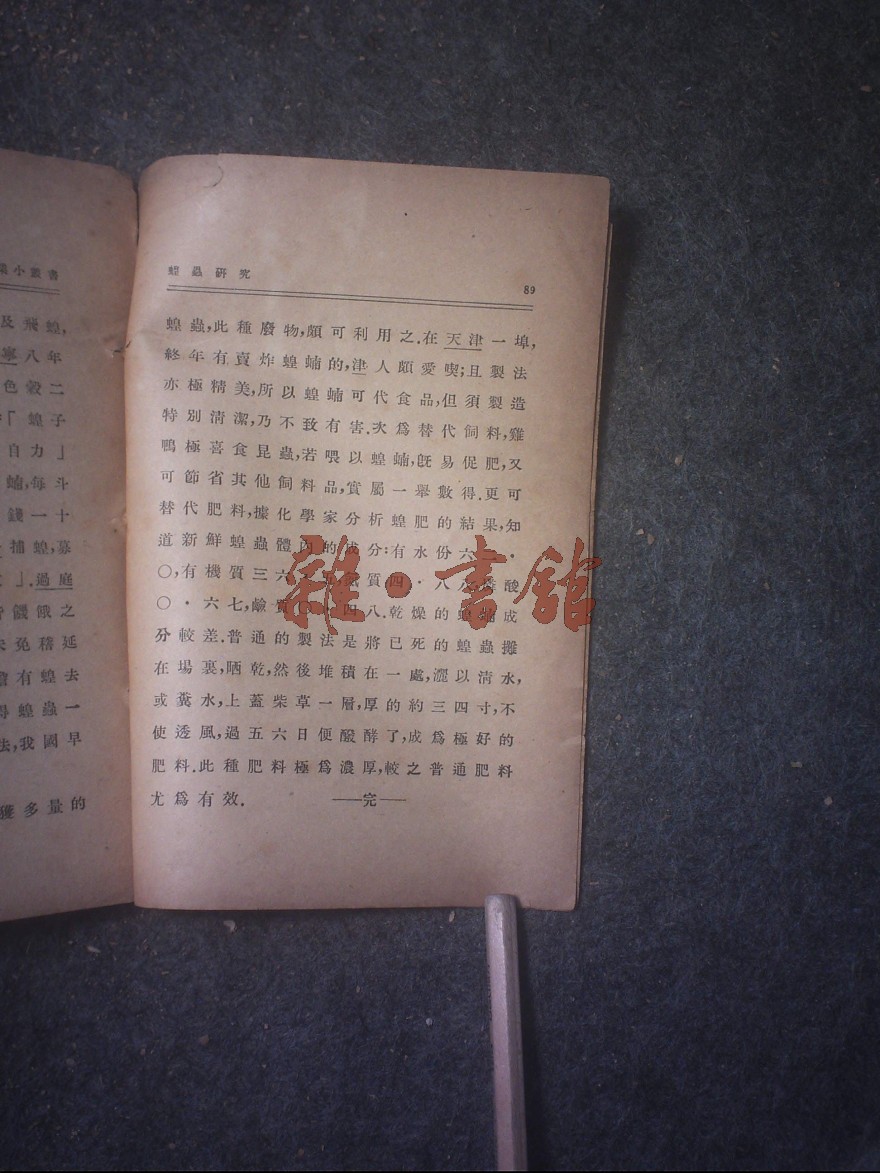 業小叢書
及飛蝗,
寧八年
色穀二
「蝗子
自力」
蝻,每斗
錢一十
捕蝗,募
」.過庭
饑餓之
免稽延
有蝗去
得蝗蟲一
法,我國早
獲多量的
蝗蟲研究
89
蝗蟲,此種廢物,頗可利用之.在天津一埠,
終年有賣炸蝗蝻的,津人頗愛喫;且製法
亦極精美,所以蝗蝻可代食品,但須製造
特別清潔,乃不致有害.次爲替代飼料,雞
鴨極喜食昆蟲,若喂以蝗蝻,旣易促肥,又
可節省其他飼料品,實屬一舉數得.更可
替代肥料,據化學家分析蝗肥的結果,知
道新鮮蝗蟲體內的成分:有水份六 ·
〇,有機質三六 質四·八 酸
〇·六七,鹼質 四八.乾燥的蝗蝻成
分較差.普通的製法是將已死的蝗蟲攤
在場裏,晒乾,然後堆積在一處,灑以清水,
或糞水,上蓋柴草一層,厚的約三四寸,不
使透風,過五六日便醱酵了,成爲極好的
肥料.此種肥料極爲濃厚,較之普通肥料
尤爲有效. ——完——
雜·書館